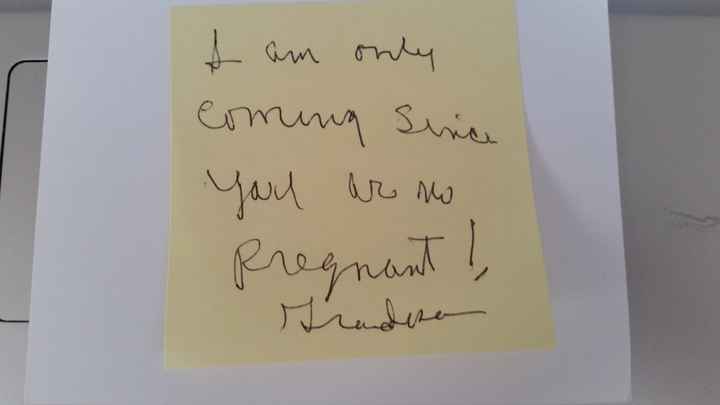 I am only
coming since
you are no
pregnant!